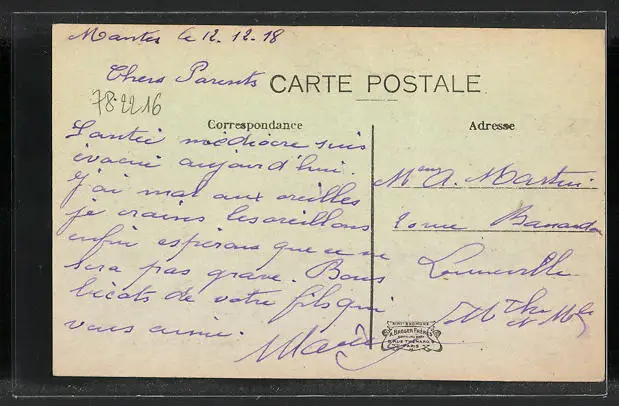 Mantes le 12.12.18
Chers Parents
CARTE POSTALE
78-2216
Correspondance
Adresse
Santé médiocre suis
évacué aujourd'hui.
J'ai mal aux oreilles
je crains les oreillons
enfin espérons que ce ne
sera pas grave. Bons
bécots de votre fils qui
vous aime.
Mme A. Martin
rue
Lunéville
Mthe et Mlle
BAUDER FRÈRES
PARIS